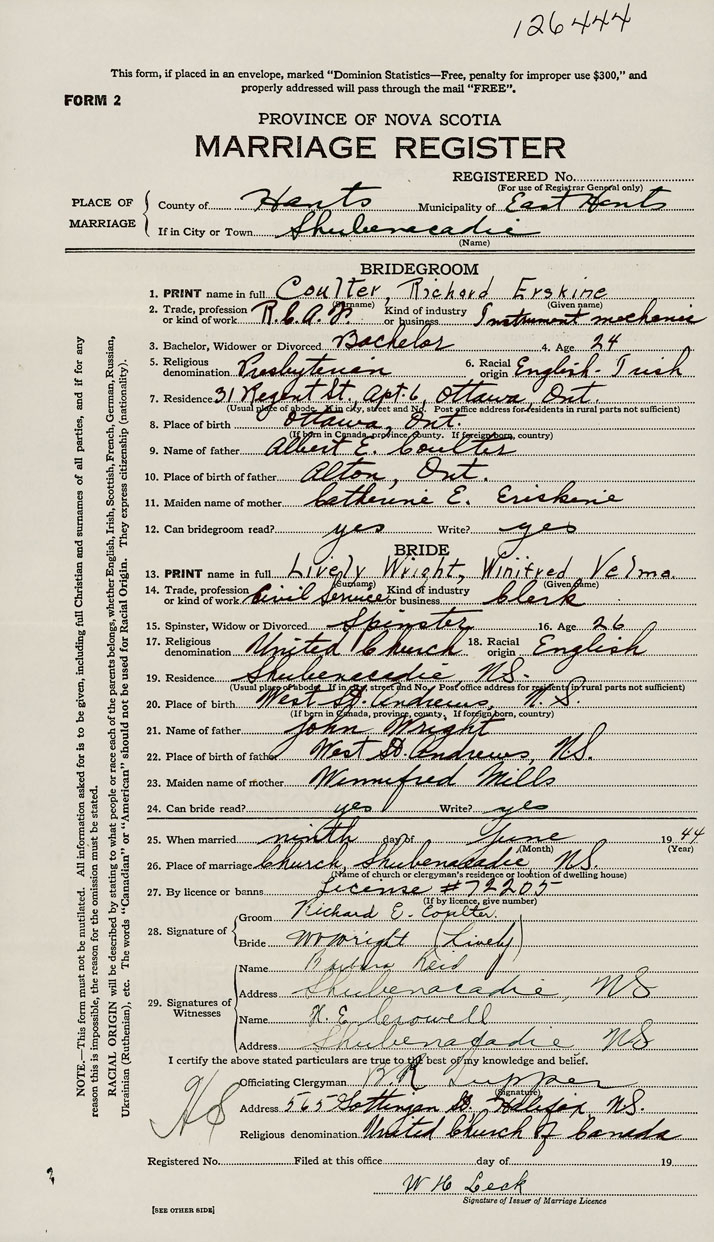 126444
This form, if placed in an envelope, marked "Dominion Statistics—Free, penalty for improper use $300," and
properly addressed will pass through the mail "FREE".
FORM 2
PROVINCE OF NOVA SCOTIA
MARRIAGE REGISTER
REGISTERED No.
(For use of Registrar General only)
PLACE OF MARRIAGE
County of Hants Municipality of East Hants
If in City or Town Shubenacadie
(Name)
BRIDEGROOM
1. PRINT name in full Coulter, Richard Erskine
(Surname) (Given name)
2. Trade, profession or kind of work R.C.A.F. Kind of industry or business Instrument mechanic
3. Bachelor, Widower or Divorced Bachelor 4. Age 24
5. Religious denomination Presbyterian 6. Racial origin English-Irish
7. Residence 31 Regent St., Apt. 6, Ottawa, Ont.
(Usual place of abode. If in city, street and No. Post office address for residents in rural parts not sufficient)
8. Place of birth Ottawa, Ont.
(If born in Canada, province, county. If foreign born, country)
9. Name of father Albert E. Coulter
10. Place of birth of father Alton, Ont.
11. Maiden name of mother Catherine E. Eriskine
12. Can bridegroom read? yes Write? yes
BRIDE
13. PRINT name in full Lively Wright, Winifred Velma
(Surname) (Given name)
14. Trade, profession or kind of work Civil Service Kind of industry or business Clerk
15. Spinster, Widow or Divorced Spinster 16. Age 26
17. Religious denomination United Church 18. Racial origin English
19. Residence Shubenacadie, N.S.
(Usual place of abode. If in city, street and No. Post office address for residents in rural parts not sufficient)
20. Place of birth West St. Andrews, N.S.
(If born in Canada, province, county. If foreign born, country)
21. Name of father John Wright
22. Place of birth of father West St. Andrews, N.S.
23. Maiden name of mother Winnifred Mills
24. Can bride read? yes Write? yes
25. When married ninth day of June 1944
(Month) (Year)
26. Place of marriage Church, Shubenacadie N.S.
(Name of church or clergyman's residence or location of dwelling house)
27. By licence or banns License #72205
(If by licence, give number)
28. Signature of
Groom Richard E. Coulter
Bride W V Wright (Lively)
29. Signatures of Witnesses
Name Barbara Reid
Address Shubenacadie, NS
Name H. E. Crowell
Address Shubenacadie NS
I certify the above stated particulars are true to the best of my knowledge and belief.
Officiating Clergyman B R Tupper
(Signature)
Address 565 Gottingen St. Halifax, N.S.
Religious denomination United Church of Canada
Registered No. Filed at this office day of 19
W H Leck
Signature of Issuer of Marriage Licence
[SEE OTHER SIDE]
NOTE.—This form must not be mutilated. All information asked for is to be given, including full Christian and surnames of all parties, and if for any
reason this is impossible, the reason for the omission must be stated.
RACIAL ORIGIN will be described by stating to what people or race each of the parents belongs, whether English, Irish, Scottish, French, German, Russian,
Ukrainian (Ruthenian), etc. The words "Canadian" or "American" should not be used for Racial Origin. They express citizenship (nationality).